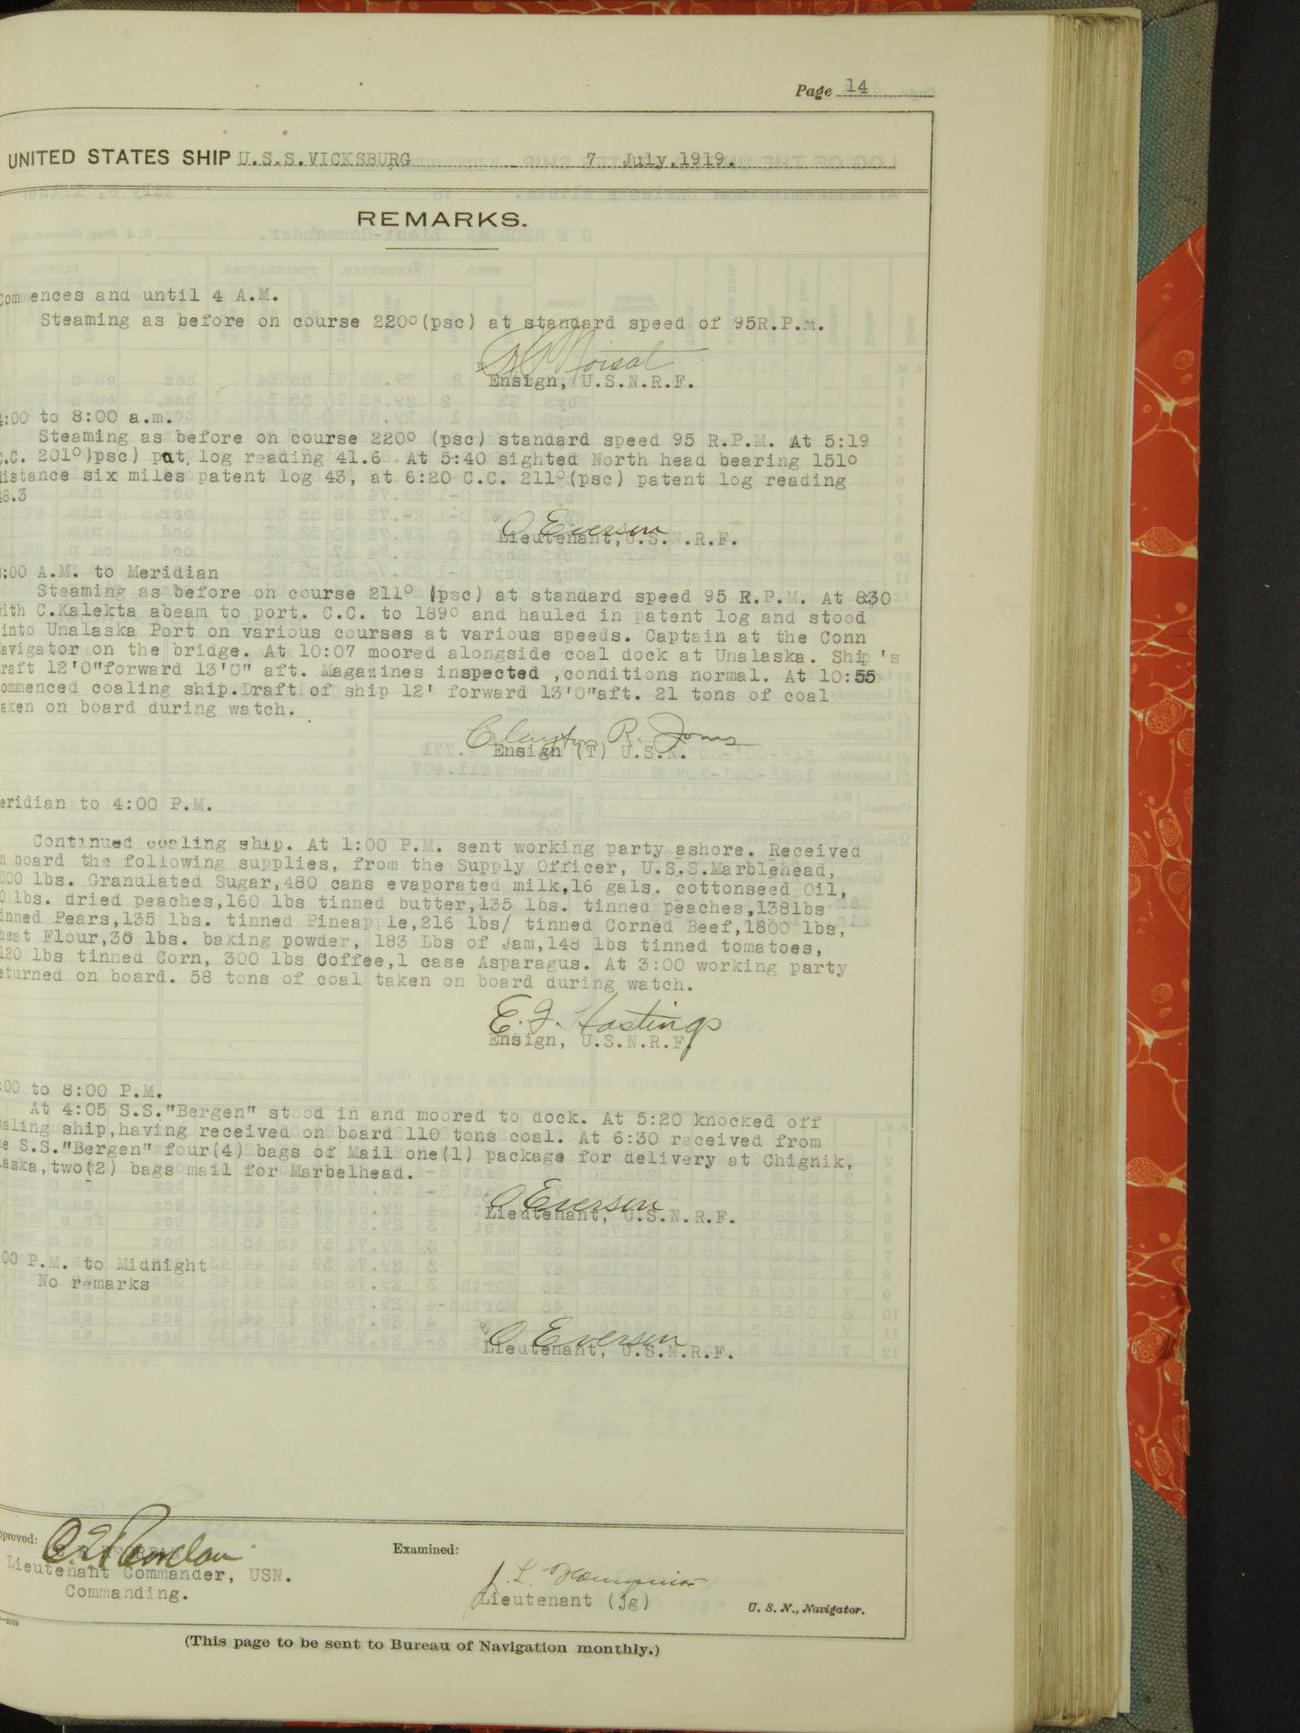 Page 14
UNITED STATES SHIP U.S.S.VICKSBURG 7 July,1919.
REMARKS.
ommences and until 4 A.M.
Steaming as before on course 220°(psc) at standard speed of 95R.P.m.
Ensign, U.S.N.R.F.
:00 to 8:00 a.m.
Steaming as before on course 220° (psc) standard speed 95 R.P.M. At 5:19
.C. 201°)psc) pat. log reading 41.6 At 5:40 sighted North head bearing 151°
distance six miles patent log 43, at 6:20 C.C. 211°(psc) patent log reading
8.3
O Everson
Lieutenant, U.S.N.R.F.
:00 A.M. to Meridian
Steaming as before on course 211° (psc) at standard speed 95 R.P.M. At 830
with C.Kalekta abeam to port. C.C. to 189° and hauled in patent log and stood
into Unalaska Port on various courses at various speeds. Captain at the Conn
avigator on the bridge. At 10:07 moored alongside coal dock at Unalaska. Ship's
raft 12'0"forward 13'0" aft. Magazines inspected ,conditions normal. At 10:55
ommenced coaling ship.Draft of ship 12' forward 13'0"aft. 21 tons of coal
aken on board during watch.
Clayton R. Jones
Ensign (T) U.S.N.
eridian to 4:00 P.M.
Continued coaling ship. At 1:00 P.M. sent working party ashore. Received
n board the following supplies, from the Supply Officer, U.S.S.Marblehead,
000 lbs. Granulated Sugar,480 cans evaporated milk,16 gals. cottonseed Oil,
0 lbs. dried peaches,160 lbs tinned butter,135 lbs. tinned peaches,138lbs
inned Pears,135 lbs. tinned Pineapple,216 lbs/ tinned Corned Beef,1800 lbs,
heat Flour,36 lbs. baking powder, 183 Lbs of Jam,148 lbs tinned tomatoes,
120 lbs tinned Corn, 300 lbs Coffee,1 case Asparagus. At 3:00 working party
eturned on board. 58 tons of coal taken on board during watch.
E. J. Hastings
Ensign, U.S.N.R.F.
:00 to 8:00 P.M.
At 4:05 S.S."Bergen" stood in and moored to dock. At 5:20 knocked off
oaling ship,having received on board 110 tons coal. At 6:30 received from
e S.S."Bergen" four(4) bags of Mail one(1) package for delivery at Chignik,
laska,two(2) bags mail for Marbelhead.
O Everson
Lieutenant, U.S.N.R.F.
:00 P.M. to Midnight
No remarks
O Everson
Lieutenant, U.S.N.R.F.
pproved:
Examined:
Lieutenant Commander, USN.
Commanding.
Lieutenant (jg) U. S. N., Navigator.
(This page to be sent to Bureau of Navigation monthly.)